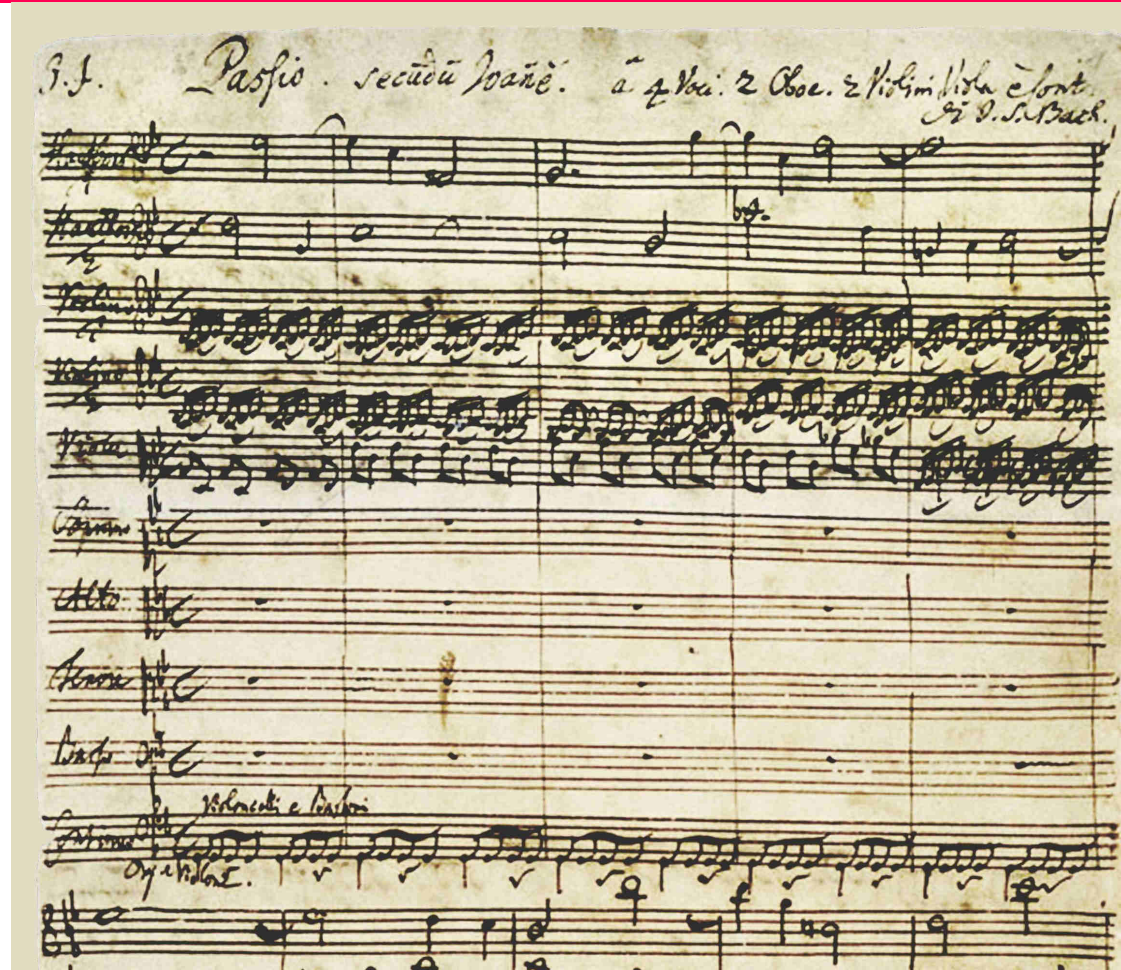 J.J. Passio. secūdū Joañē. à 4 Voci. 2 Oboe. 2 Violini Viola è Cont.
di J. S. Bach.
Hautbois
Hautbois
2
Violino
1
Violino
2
Viola
Soprano
Alto
Tenore
Basso
Violoncelli e Bassoni
Continuo
Org. e Violone.